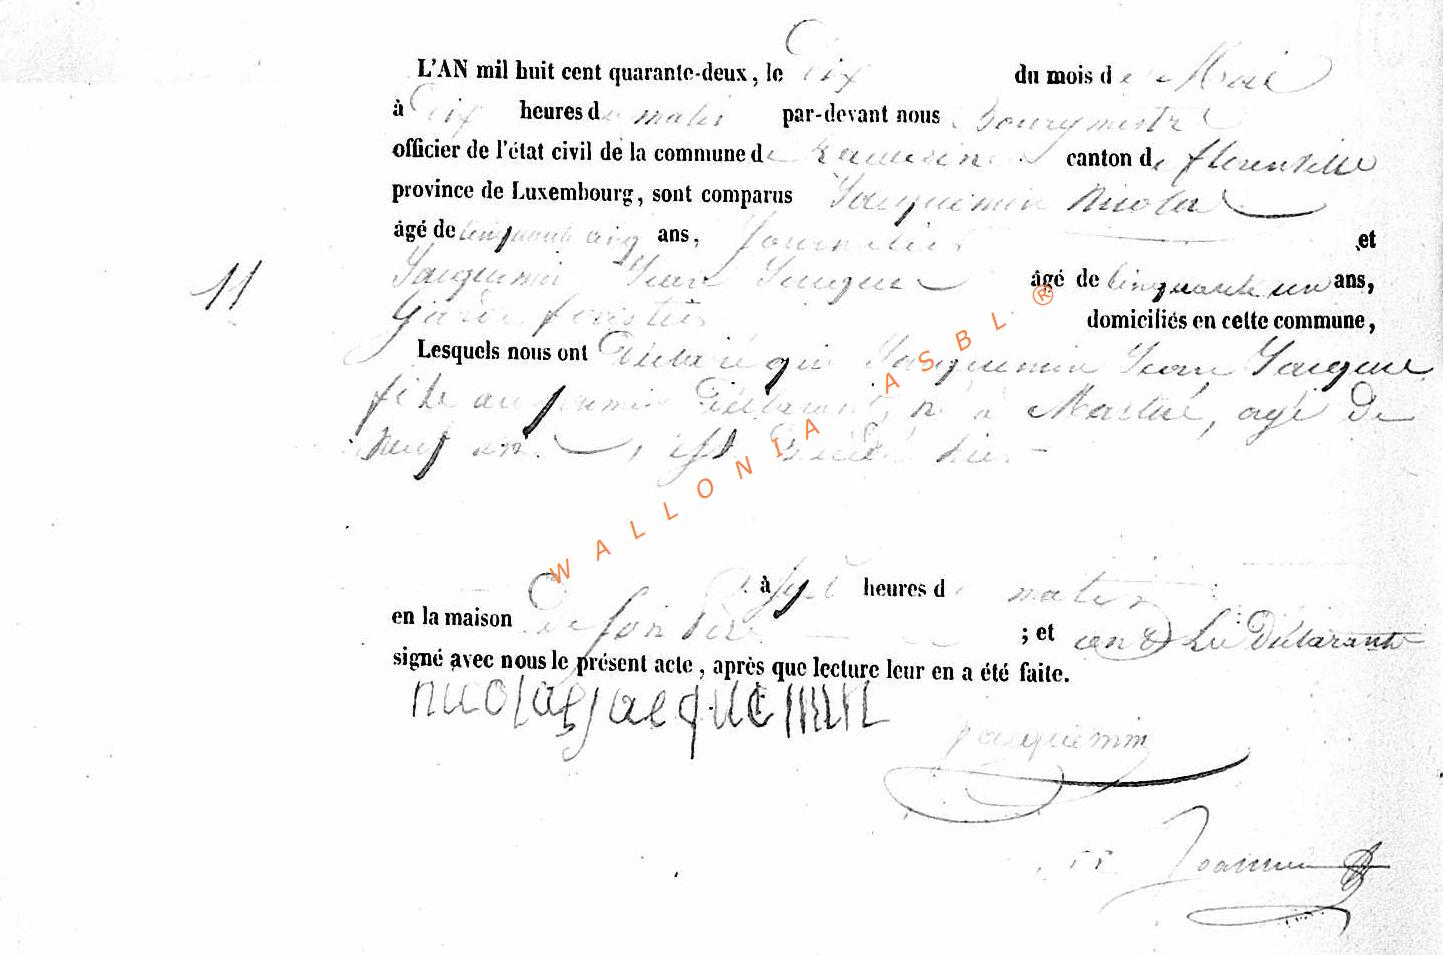 L'AN mil huit cent quarante-deux, le Dix du mois de Mai
à Dix heures du matin par-devant nous Bourgmestre
officier de l'état civil de la commune de canton de florenville
province de Luxembourg, sont comparus Jacquemin Nicolas
âgé de cinquante cinq ans, Journalier et
Jacquemin Jean Jacque âgé de cinquante un ans,
garde forestier domiciliés en cette commune,
11
Lesquels nous ont Déclaré que Jacquemin Jean Jacque
fils au premier Déclarant, né à Martué, agé de
neuf ans, est Décédé hier
à sept heures du matin
en la maison De son Père ; et ont Les Déclarants
signé avec nous le présent acte, après que lecture leur en a été faite.
nicolas jacquemin
jacquemin
WALLONIA ASBL ®